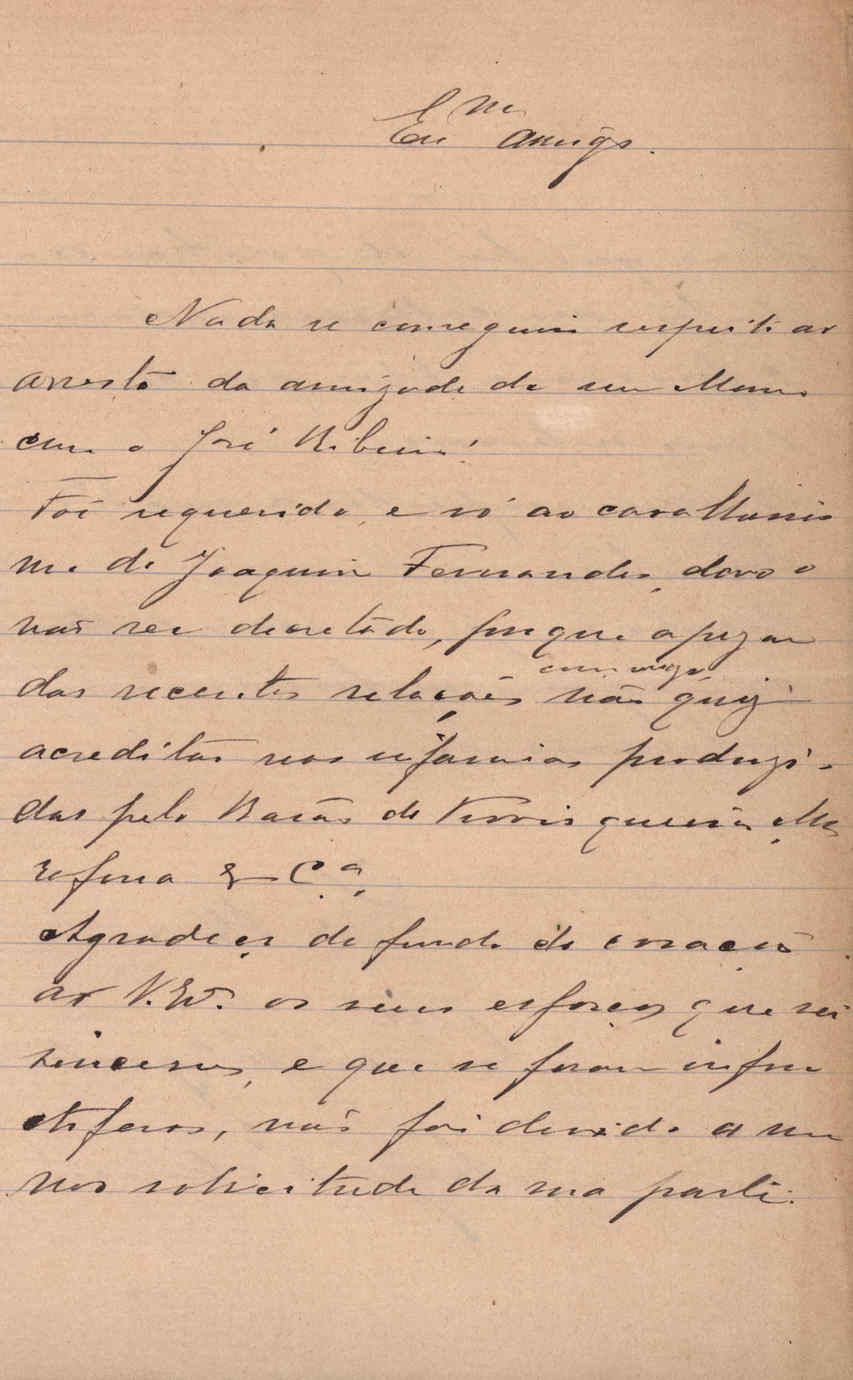 Exmo amigo.
Nada se conseguiu respeito ao
arresto da amizade de meu Mano
com o José Ribeiro!
Foi requerido, e só ao cavalheiris
mo de Joaquim Fernandes, devo o
não ser decretado, porque apezar
das recentes relações commigo não quiz
acreditar nas infamias produzi-
das pelo Barão de
& Ca
Agradeço do fundo do coração
ao V. Exa. os seus esforços que sei
sinceros, e que se foram infru
ctiferos, não foi devido a me
nos solicitude da sua parte.